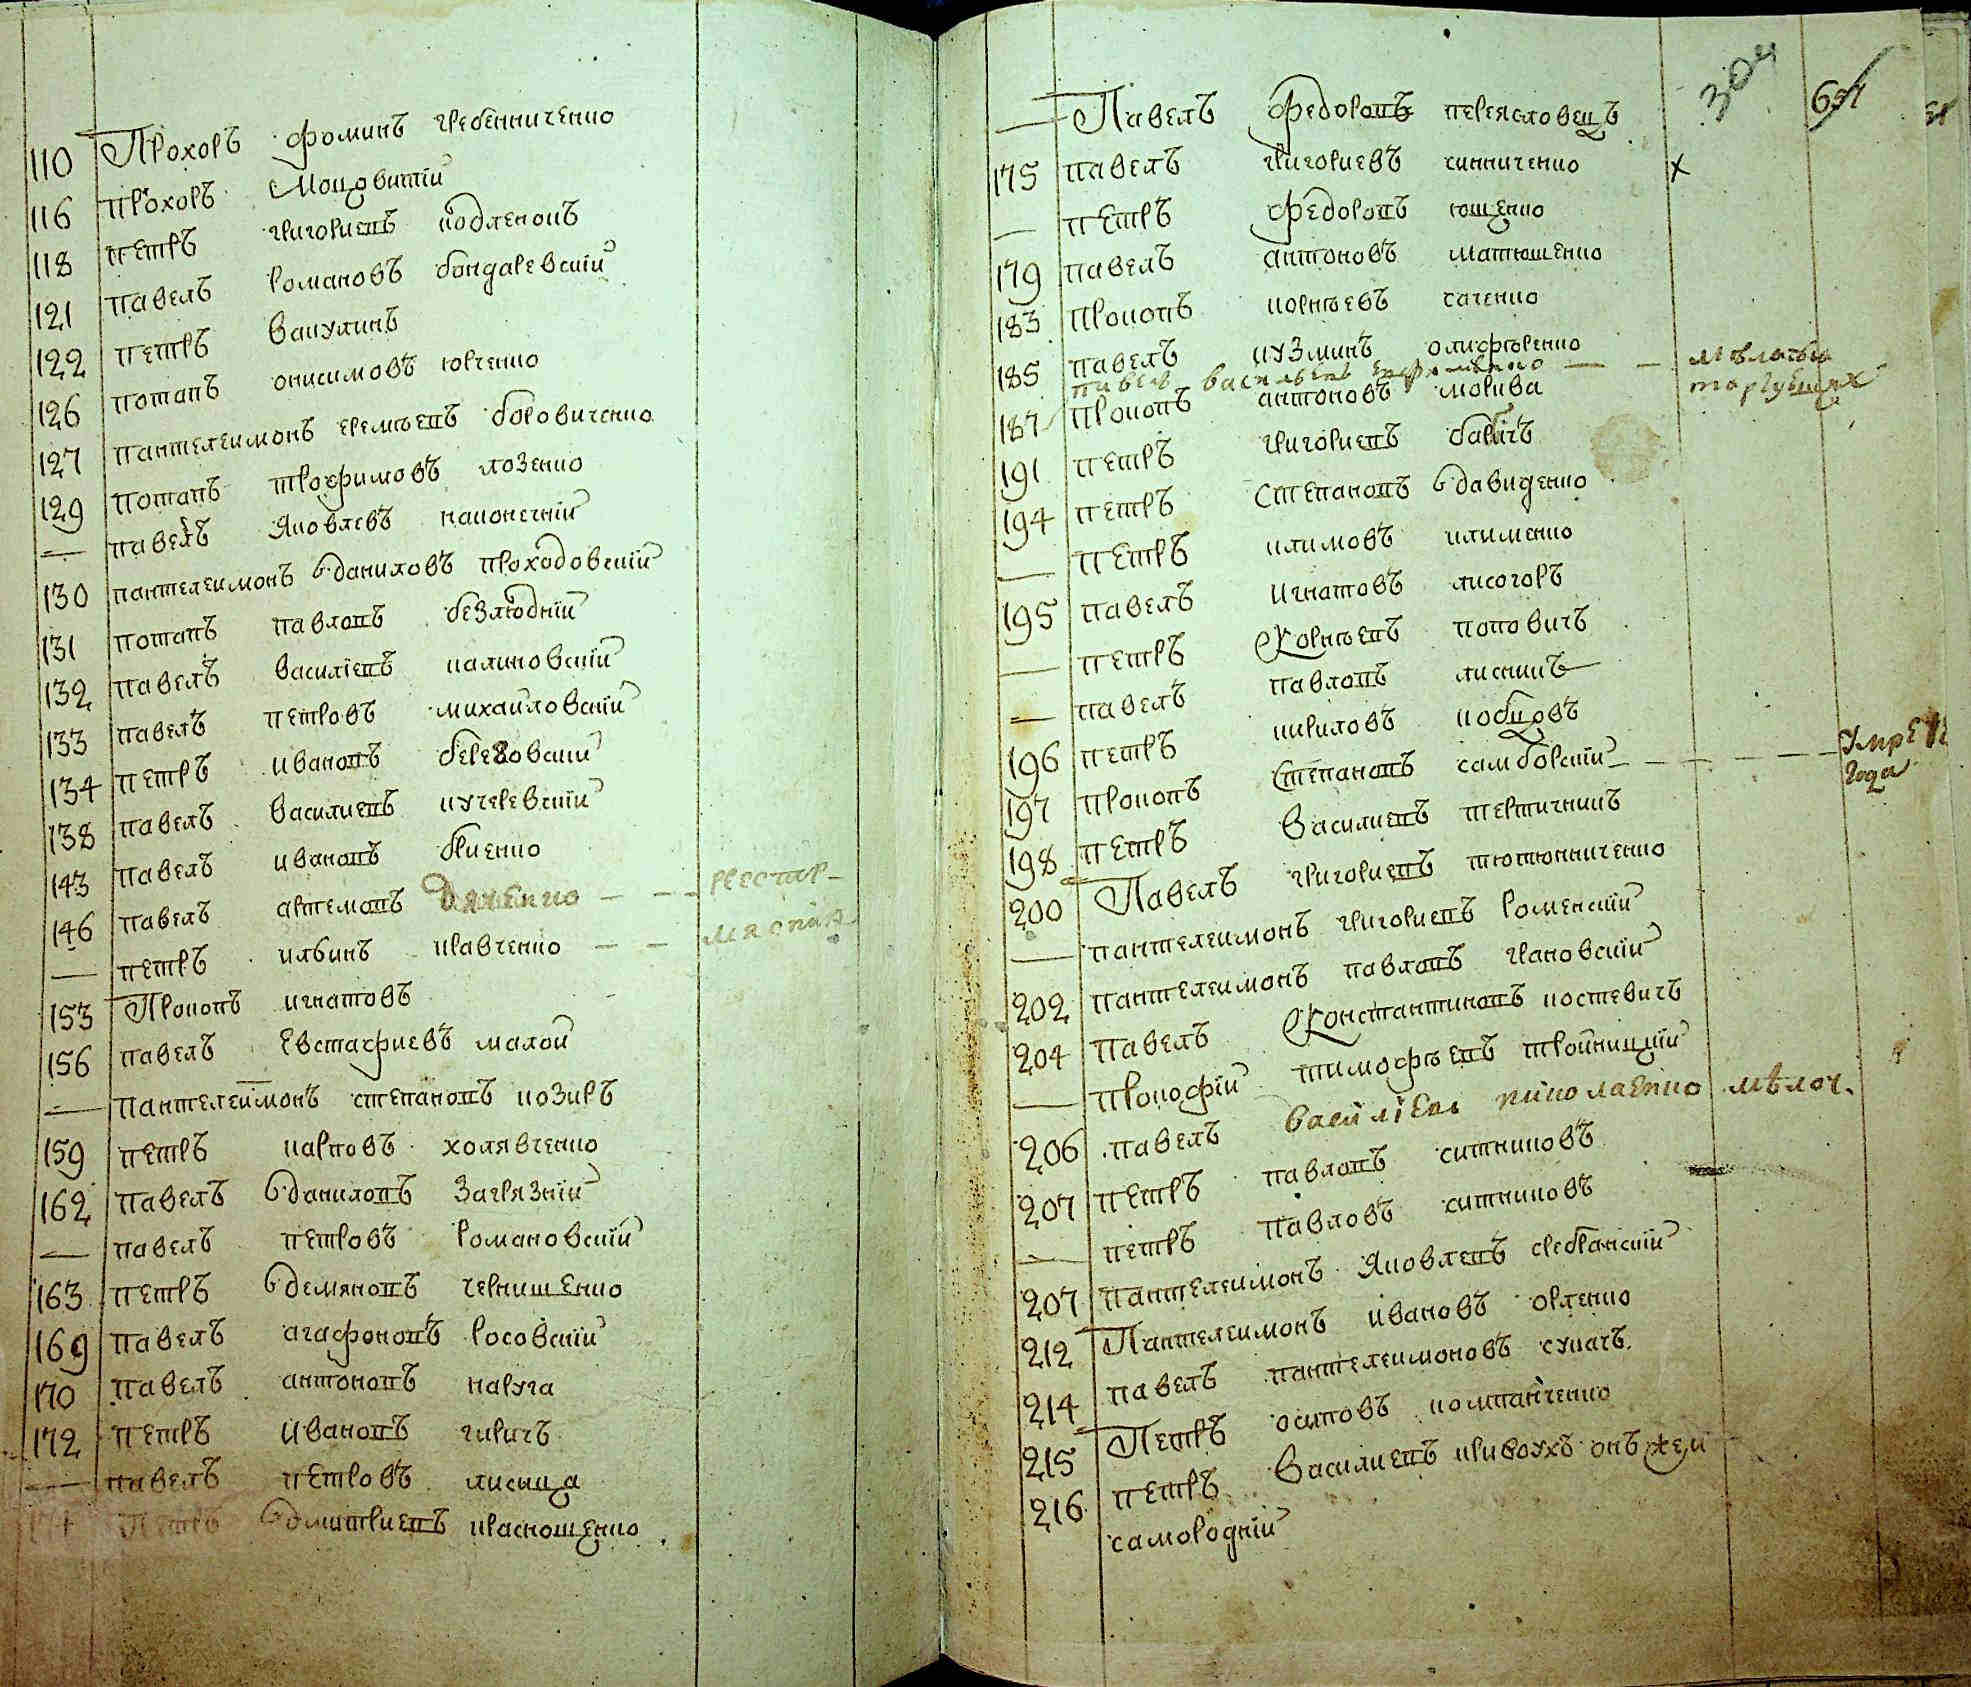 110 Прохоръ фоминъ гребенниченко
116 прохоръ Моцовитий
118 петръ григориевъ кодленокъ
121 павелъ романовъ бондаревский
122 петръ вакулинъ
126 потапъ онисимовъ юрченко
127 пантелеимонъ еремѣевъ боровиченко
129 потапъ трофимовъ лозенко
— павелъ Яковлевъ наконечній
130 пантелеимонъ даниловъ проходовскій
131 потапъ павловъ безлюдній
132 павелъ василіевъ калиновскій
133 павелъ петровъ михаиловскій
134 петръ ивановъ березовскій
138 павелъ василиевъ кучеревскій
143 павелъ ивановъ бриенко
146 павелъ артемовъ дяченко — —
— петръ илбинъ кравченко — —
153 Прокопъ игнатовъ
156 павелъ Евстафиевъ малой
— пантелеимонъ степановъ козиръ
159 петръ карповъ холявченко
162 павелъ даниловъ загрязній
— павелъ петровъ романовскій
163 петръ демяновъ чернишенко
169 павелъ агафоновъ росовскій
170 павелъ антоновъ каруга
172 петръ ивановъ чиричъ
— павелъ петровъ лисица
Петръ дмитриевъ красношенко
304
— Павелъ федоровъ переясловецъ
175 павелъ григориевъ синниченко x
— петръ федоровъ ющенко
179 павелъ антоновъ матюшенко
183 Прокопъ корнѣевъ саченко
185 павелъ кузминъ олифѣренко
павелъ василъевъ — —
торгующих
187 Прокопъ антоновъ морива
191 петръ григориевъ бабичъ
194 петръ Степановъ давиденко
— петръ климовъ клименко
195 павелъ игнатовъ лисогоръ
— петръ Корнѣевъ поповичъ
— павелъ павловъ лисникъ
196 петръ кириловъ кобцовъ
197 Прокопъ Степановъ самборскій — — — — умре
года
198 петръ василиевъ тертичникъ
200 Павелъ григориевъ тютюнниченко
— пантелеимонъ григориевъ роменскій
202 пантелеимонъ павловъ грановскій
204 павелъ Константиновъ костевичъ
— Прокофій тимофѣевъ тройницкій
206 павелъ василіевъ николаенко мѣлоч.
207 петръ павловъ ситниковъ
— петръ павловъ ситниковъ
207 пантелеимонъ Яковлевъ сребранскій
212 Пантелеимонъ ивановъ орленко
214 павелъ пантелеимоновъ сукачъ
215 Петръ осиповъ компанченко
216 петръ василиевъ кривоухъ онъ же и
самородній